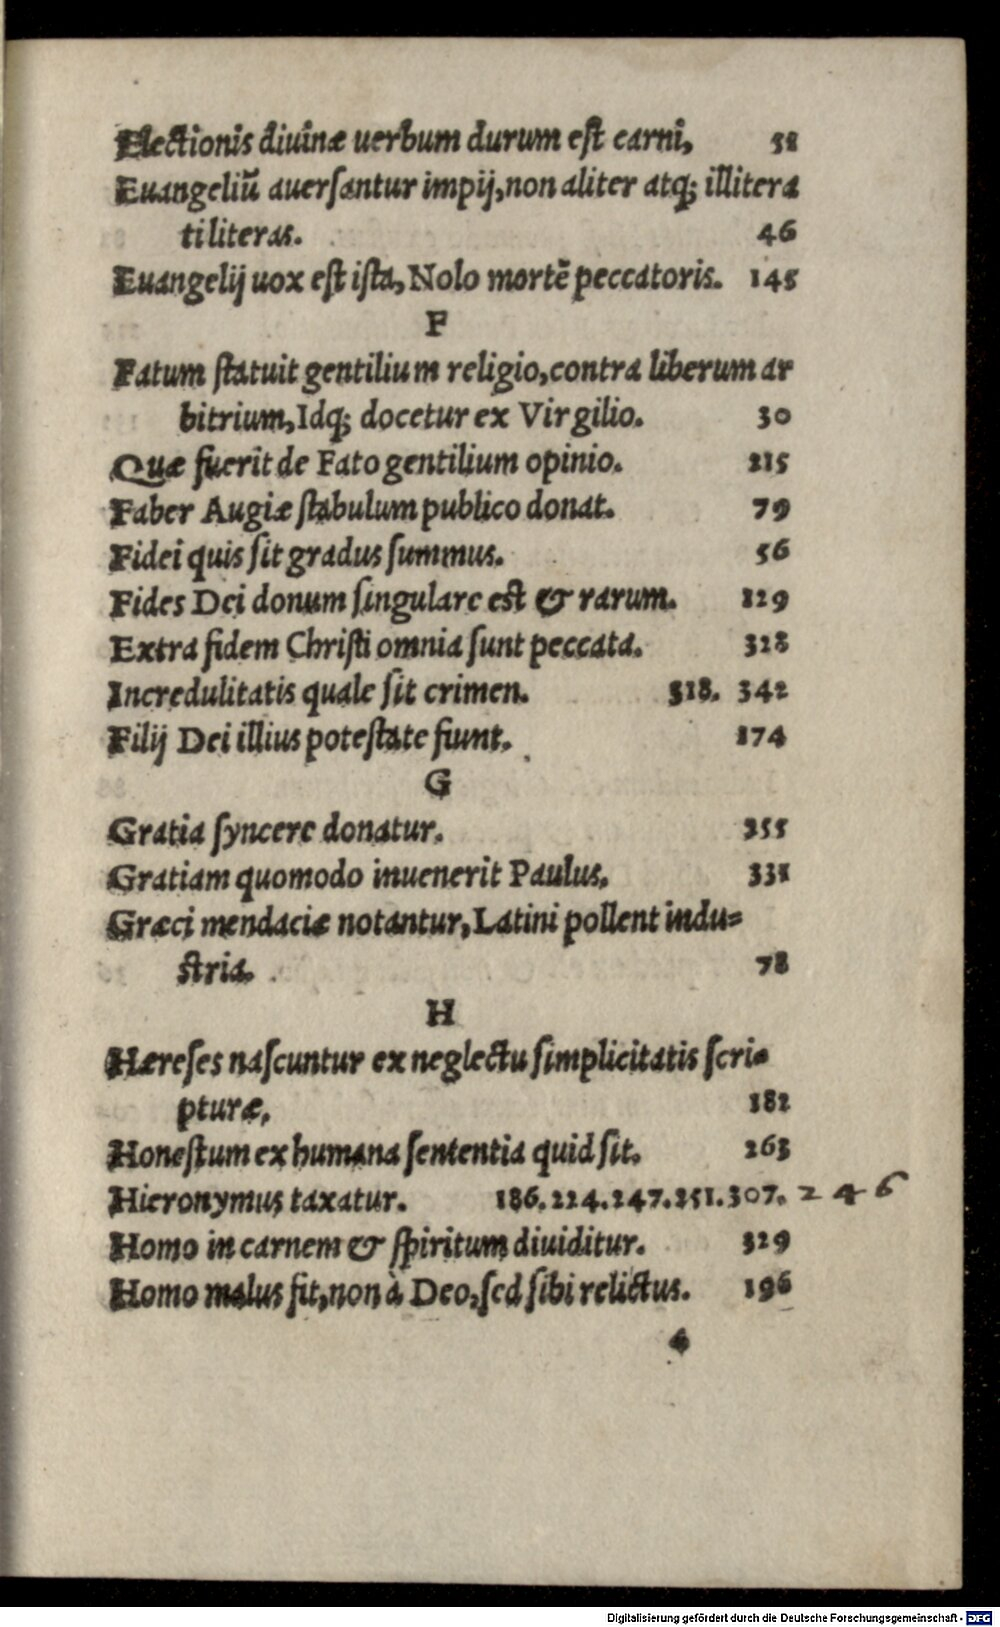 Electionis diuinæ uerbum durum est carni, 58
Euangeliũ auersantur impij, non aliter atq; illitera
ti literas. 46
Euangelij uox est ista, Nolo mortẽ peccatoris. 145
F
Fatum statuit gentilium religio, contra liberum ar
bitrium, Idq; docetur ex Virgilio. 30
Quæ fuerit de Fato gentilium opinio. 215
Faber Augiæ stabulum publico donat. 79
Fidei quis sit gradus summus. 56
Fides Dei donum singulare est & rarum. 129
Extra fidem Christi omnia sunt peccata. 328
Incredulitatis quale sit crimen. 318. 342
Filij Dei illius potestate fiunt. 174
G
Gratia syncere donatur. 255
Gratiam quomodo inuenerit Paulus. 331
Græci mendaciæ notantur, Latini pollent indu=
stria. 78
H
Hæreses nascuntur ex neglectu simplicitatis scri=
pturæ, 182
Honestum ex humana sententia quid sit. 263
Hieronymus taxatur. 186. 224. 247. 251. 307. 246
Homo in carnem & spiritum diuiditur. 329
Homo malus fit, non à Deo, sed sibi relictus. 196
Digitalisierung gefördert durch die Deutsche Forschungsgemeinschaft - DFG